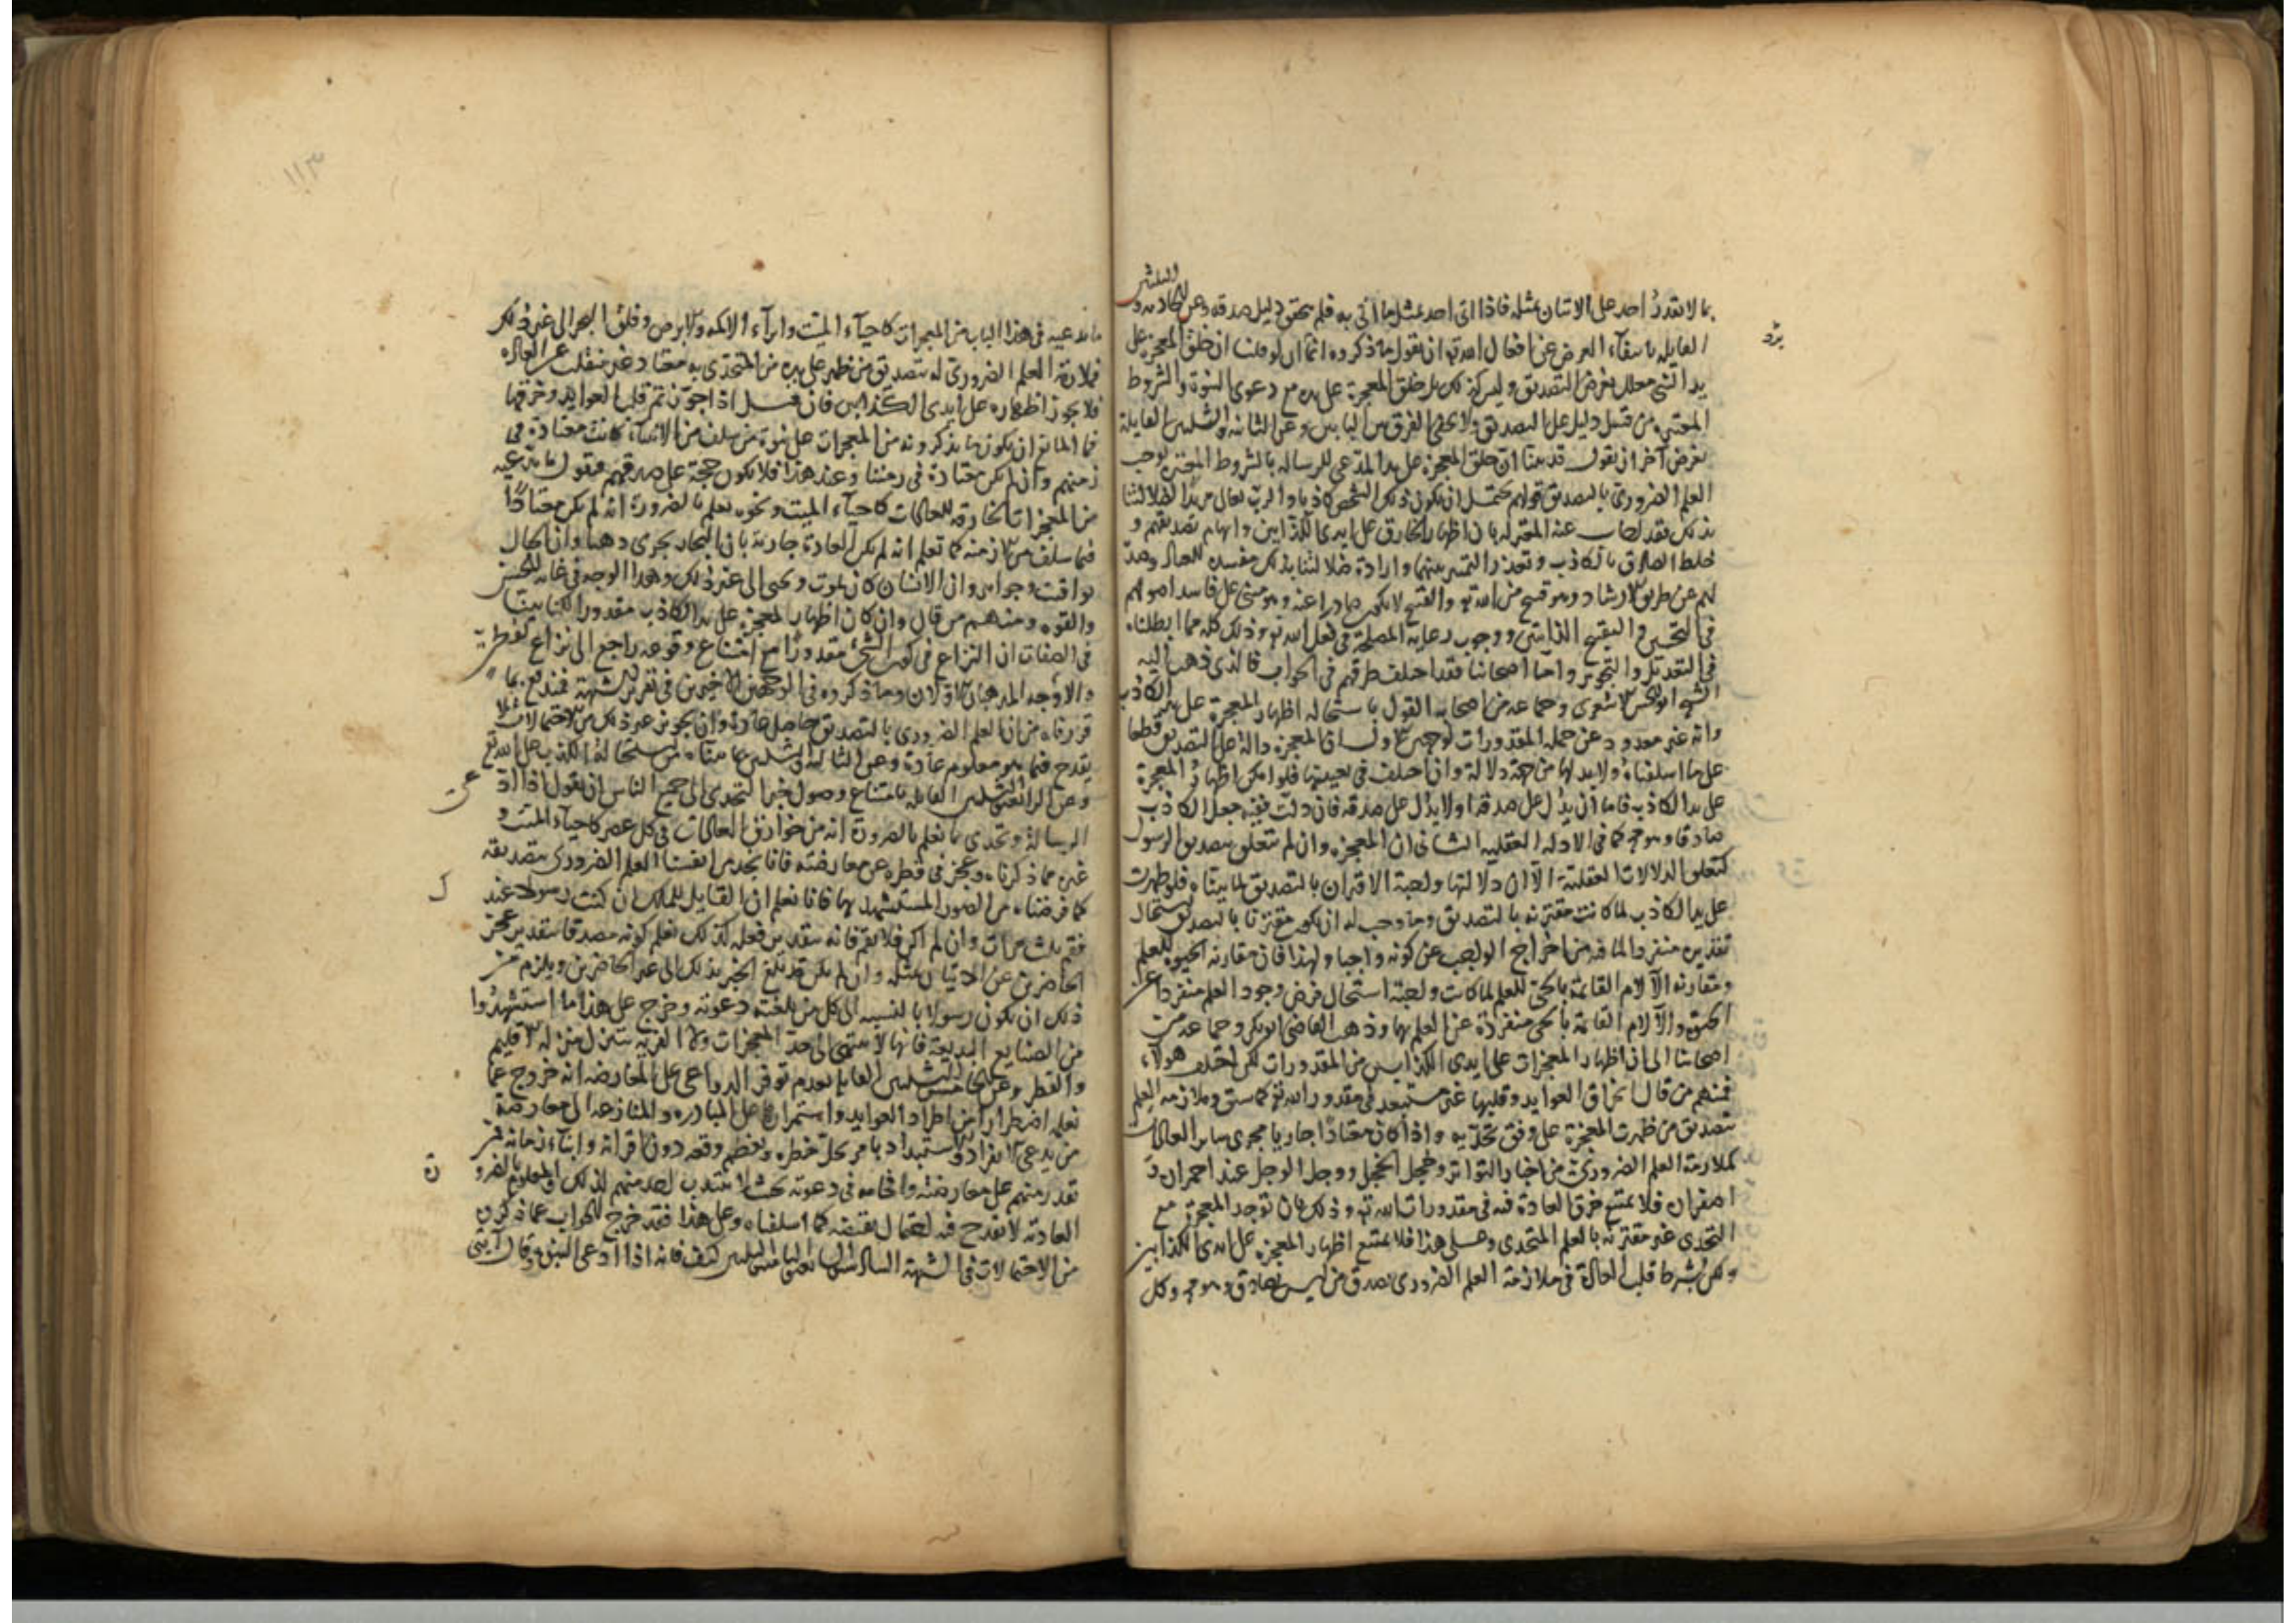 بما لا يقدر احد على الاتيان بمثله فاذا اتى احد بمثل ما اتى به فلم يتحقق دليل صدقه وعن الحادية و
الثلثين
القايلة بانتفاء الغرض عن افعال الله تع ان نقول ما ذكروه انما ان لو قلنا ان خلق المعجزة على
يد النبي معلل بغرض التصديق وليس كذلك بل خلق المعجزة على يده مع دعوى النبوة والشروط
المعتبرة من قبل دليل على التصديق ولا يخفى الفرق بين البابين وعن الثانية والثلثين القايلة
بغرض آخر ان نقول قد بينا ان خلق المعجزة على يد المدعي للرسالة بالشروط المعتبرة يوجب
العلم الضروري بالتصديق قولهم يحتمل ان يكون ذلك الشخص كاذبا والرب تعالى مريدا لضلالنا
بذلك فقد اجاب عنه المعتزلة بان اظهار الخارق على ايدي الكذابين وايهام تصديقهم و
خلط الصادق بالكاذب وتعذر التمييز بينهما وارادة ضلالنا بذلك مفسدة للعالم وصد
لهم عن طريق الارشاد وهو قبيح من الله تع والقبيح لا يكون صادرا عنه وهو مبني على فاسد اصولهم
في التحسين والتقبيح الذاتي ووجوب رعاية المصلحة في فعل الله تع وذلك كله مما ابطلناه
في التعديل والتجوير واما اصحابنا فقد اختلف طرقهم في الجواب فالذي ذهب اليه
الشيخ ابو الحسن الاشعري وجماعة من اصحابه القول باستحالة اظهار المعجزة على يد الكاذب
وانه غير معدود من جملة المقدورات لوجهين الاول ان المعجزة دالة على التصديق قطعا
على ما اسلفناه ولا بد لها من جهة دلالة وان اختلف في تعيينها فلو امكن اظهار المعجزة
على يد الكاذب فاما ان يدل على صدقه او لا يدل على صدقه فان دلت فيه جعل الكاذب
صادقا وهو مح كما في الادلة العقلية الثاني ان المعجزة وان لم تتعلق بتصديق الرسول
كتعلق الدلالات العقلية الا ان دلالتها واجبة الاقتران بالتصديق لما بيناه فلو ظهرت
على يد الكاذب لما كانت مقترنة بالتصديق وما وجب له ان يكون مقترنا بالتصديق استحال
تقديره منفردا لما فيه من اخراج الواجب عن كونه واجبا ولهذا فان مقارنة الحيوة للعلم
ومقارنة الآلام القائمة بالحي للعلم لما كانت واجبة استحال فرض وجود العلم منفردا عن
الحيوة والآلام القائمة بالحي منفردة عن العلم بها وذهب القاضي ابو بكر وجماعة من
اصحابنا الى ان اظهار المعجزات على ايدي الكذابين من المقدورات لكن اختلف هولاء
فمنهم من قال انخراق العوايد وقلبها غير مستبعد في مقدور الله تع كما سبق وملازمة العلم
بتصديق من ظهرت المعجزة على وفق تحديه واذا كان معتادا جاريا مجرى ساير العادات
كملازمة العلم الضروري من اخبار التواتر وخجل الخجل ووجل الوجل عند احمراره و
اصفراره فلا يمتنع خرق العادة فيه في مقدورات الله تع وذلك بان توجد المعجزة مع
التحدي غير مقترنة بالعلم المتحدي وعلى هذا فلا يمتنع اظهار المعجزة على ايدي الكذابين
ولكن بشرط قلب العادة في ملازمة العلم الضروري بصدق من ليس بصادق وهو مح وكل
يرد
١١٣
ما ندعيه في هذا الباب من المعجزات كاحياء الميت وابرآء الاكمه والابرص وفلق البحر الى غير ذلك
فملازمة العلم الضروري له بتصديق من ظهر على يده من المتحدي به معتاد غير منقلب عن العادة
فلا يجوز اظهاره على ايدي الكذابين فان قيل اذا جوزتم قلب العوايد وخرقها
فما المانع ان يكون ما يذكرونه من المعجزات على نبوة من سلف من الانبيآء كانت معتادة في
زمنهم وان لم يكن معتادة في زمننا وعند هذا فلا يكون حجة على صدقهم فنقول ما ندعيه
من المعجزات الخارقة للعادات كاحيآء الميت ونحوه نعلم بالضرورة انه لم يكن معتادا
فيما سلف من الازمنة كما نعلم انه لم يكن العادة جارية بان البحار تجري دهنا وان الجبال
يواقيت وجواهر وان الانسان كان يموت ويحيى الى غير ذلك وهذا الوجه في غاية الحسن
والقوة ومنهم من قال وان كان اظهار المعجزة على يد الكاذب مقدورا لكنا بينا
في الصفات ان النزاع في كون الشيء مقدورا مع امتناع وقوعه راجع الى نزاع لفظي
والاوجه المذهبان الاولان وما ذكروه في الوجهين الاخيرين في تقرير الشبهة فمندفع بما
قررناه من ان العلم الضروري بالتصديق حاصل عادة وان تجويز غير ذلك من الاحتمالات لا
يقدح فيما هو معلوم عادة وعن الثالثة والثلثين ما بيناه من استحالة الكذب على الله تع
وعن الرابعة والثلثين القايلة بامتناع وصول خبر التحدي الى جميع الناس ان نقول اذا ادعى
الرسالة وتحدى بما نعلم بالضرورة انه من خوارق العادات في كل عصر كاحيآء الميت و
غيره مما ذكرناه وعجز في قطره عن معارضته فانا نجد من انفسنا العلم الضروري بتصديقه
كما فرضناه من الصور المستشهد بها فانا نعلم ان القايل للملك ان كنت رسولك عند
فقم ثلث مرات وان لم اكن فلا تقم فانه بتقدير فعله كذلك نعلم كونه مصدقا بتقدير عجز
الحاضرين عن الاتيان بمثله وان لم يكن قد بلغ الخبر بذلك الى غير الحاضرين ويلزم من
ذلك ان يكون رسولا بالنسبة الى كل من بلغته دعوته وخرج على هذا ما استشهدوا
من الصنايع البديعة فانها لا تنتهي الى حد المعجزات ولا القرية تتنزل منزلة الاقليم
والقطر وعن الخامسة والثلثين القايلة بعدم توفر الدواعي على المعارضة انه خروج عما
نعلم اضطرارا من اطراد العوايد واستمرارها على المبادرة والمنازعة الى معارضة
من يدعي الانفراد والاستبداد بامر يجل خطره ويعظم وقعه دون اقرانه وابناء زمانه من
تقدر منهم على معارضته وافحامه في دعوته بحيث لا ينتدب احد منهم لذلك والعلوم الضرو
العادية لا يقدح فيه احتمال نقيضه كما اسلفناه وعلى هذا فقد خرج الجواب عما ذكروه
من الاحتمالات في الشبهة السادسة والثلثين كيف فانه اذا ادعى النبوة وقال آيتي